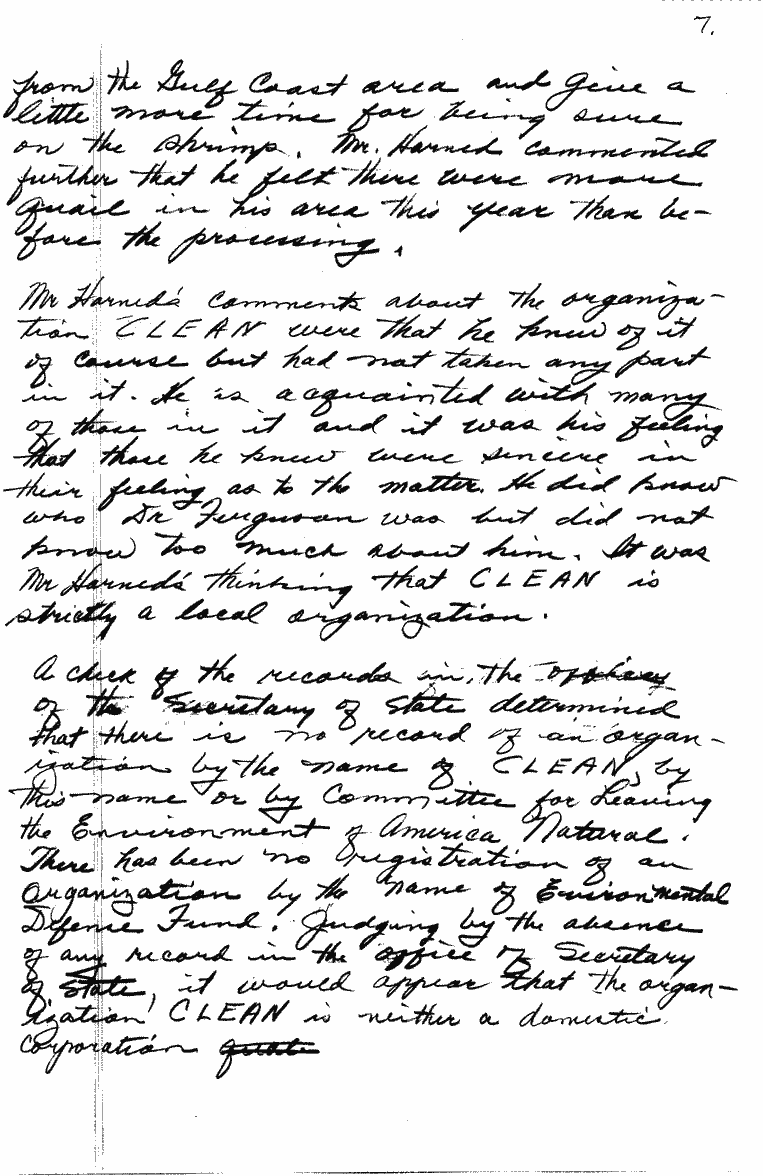 7.
from the Gulf Coast area and give a
little more time for being sure
on the shrimp. Mr. Harned commented
further that he felt there were more
quail in his area this year than be-
fore the processing.
Mr Harned's comments about the organiza-
tion CLEAN were that he knew of it
of course but had not taken any part
in it. He is acquainted with many
of those in it and it was his feeling
that those he knew were sincere in
their feeling as to the matter. He did know
who Dr Ferguson was but did not
know too much about him. It was
Mr Harned's thinking that CLEAN is
strictly a local organization.
A check of the records in the
of the Secretary of State determined
that there is no record of an organ-
ization by the name of CLEAN, by
this name or by Committee for Leaving
the Environment of America Natural.
There has been no registration of an
organization by the name of Environmental
Defense Fund. Judging by the absence
of any record in the office of Secretary
of State, it would appear that the organ-
ization CLEAN is neither a domestic
corporation